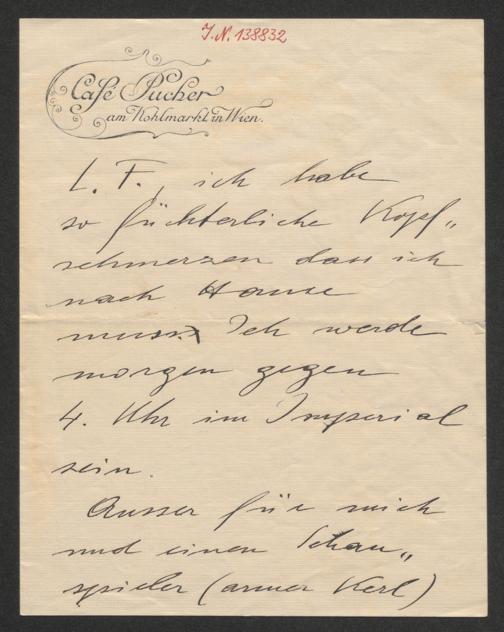 J.N. 138832
Café Pucher
am Kohlmarkt in Wien.
L. F., ich habe
so füchterliche Kopf„
schmerzen dass ich
nach Hause
muss. Ich werde
morgen gegen
4. Uhr im Imperial
sein.
Ausser für mich
und einen Schau„
spieler (armer Kerl)